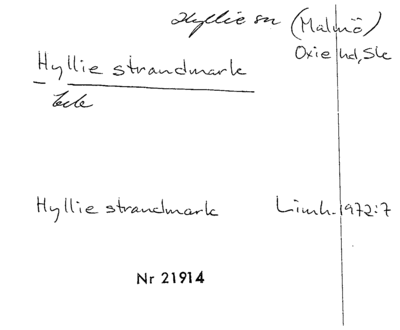 Hyllie sn (Malmö)
Oxie hd, Sk
Hyllie strandmark
Hyllie strandmark Limh. 1972:7
Nr 21914